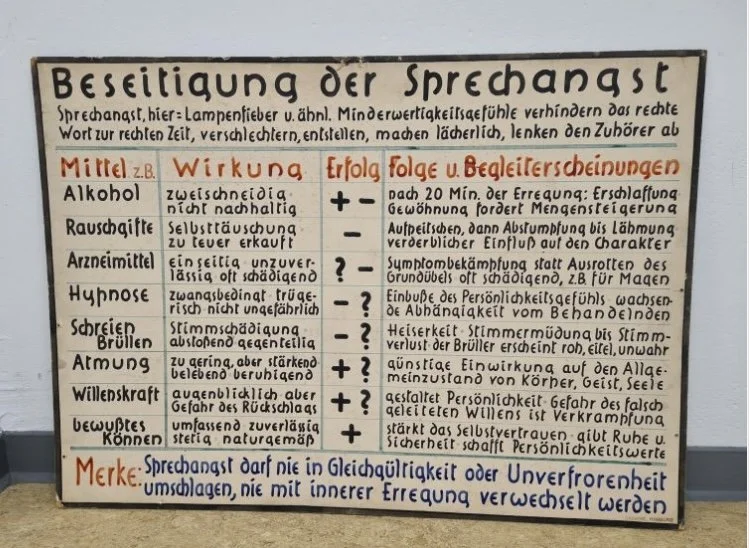 Beseitigung der Sprechangst
Sprechangst, hier = Lampenfieber u. ähnl. Minderwertigkeitsgefühle verhindern das rechte
Wort zur rechten Zeit, verschlechtern, entstellen, machen lächerlich, lenken den Zuhörer ab
Mittel z.B. Wirkung Erfolg Folge u. Begleiterscheinungen
Alkohol zweischneidig + – nach 20 Min. der Erregung: Erschlaffung
nicht nachhaltig Gewöhnung fordert Mengensteigerung
Rauschgifte Selbsttäuschung – Aufpeitschen, dann Abstumpfung bis Lähmung
zu teuer erkauft verderblicher Einfluß auf den Charakter
Arzneimittel einseitig unzuver- ? – Symptombekämpfung statt Ausrotten des
lässig oft schädigend Grundübels oft schädigend, z.B. für Magen
Hypnose zwangsbedingt trüge- – ? Einbuße des Persönlichkeitsgefühls wachsen-
risch nicht ungefährlich de Abhängigkeit vom Behandelnden
Schreien Stimmschädigung – ? Heiserkeit Stimmermüdung bis Stimm-
Brüllen abstoßend gegenteilig verlust der Brüller erscheint roh, eitel, unwahr
Atmung zu gering, aber stärkend + ? günstige Einwirkung auf den Allge-
belebend beruhigend meinzustand von Körper, Geist, Seele
Willenskraft augenblicklich aber + ? gestaltet Persönlichkeit Gefahr des falsch
Gefahr des Rückschlags geleiteten Willens ist Verkrampfung
bewußtes umfassend zuverlässig + stärkt das Selbstvertrauen gibt Ruhe u.
Können stetig naturgemäß Sicherheit schafft Persönlichkeitswerte
Merke: Sprechangst darf nie in Gleichgültigkeit oder Unverfrorenheit
umschlagen, nie mit innerer Erregung verwechselt werden